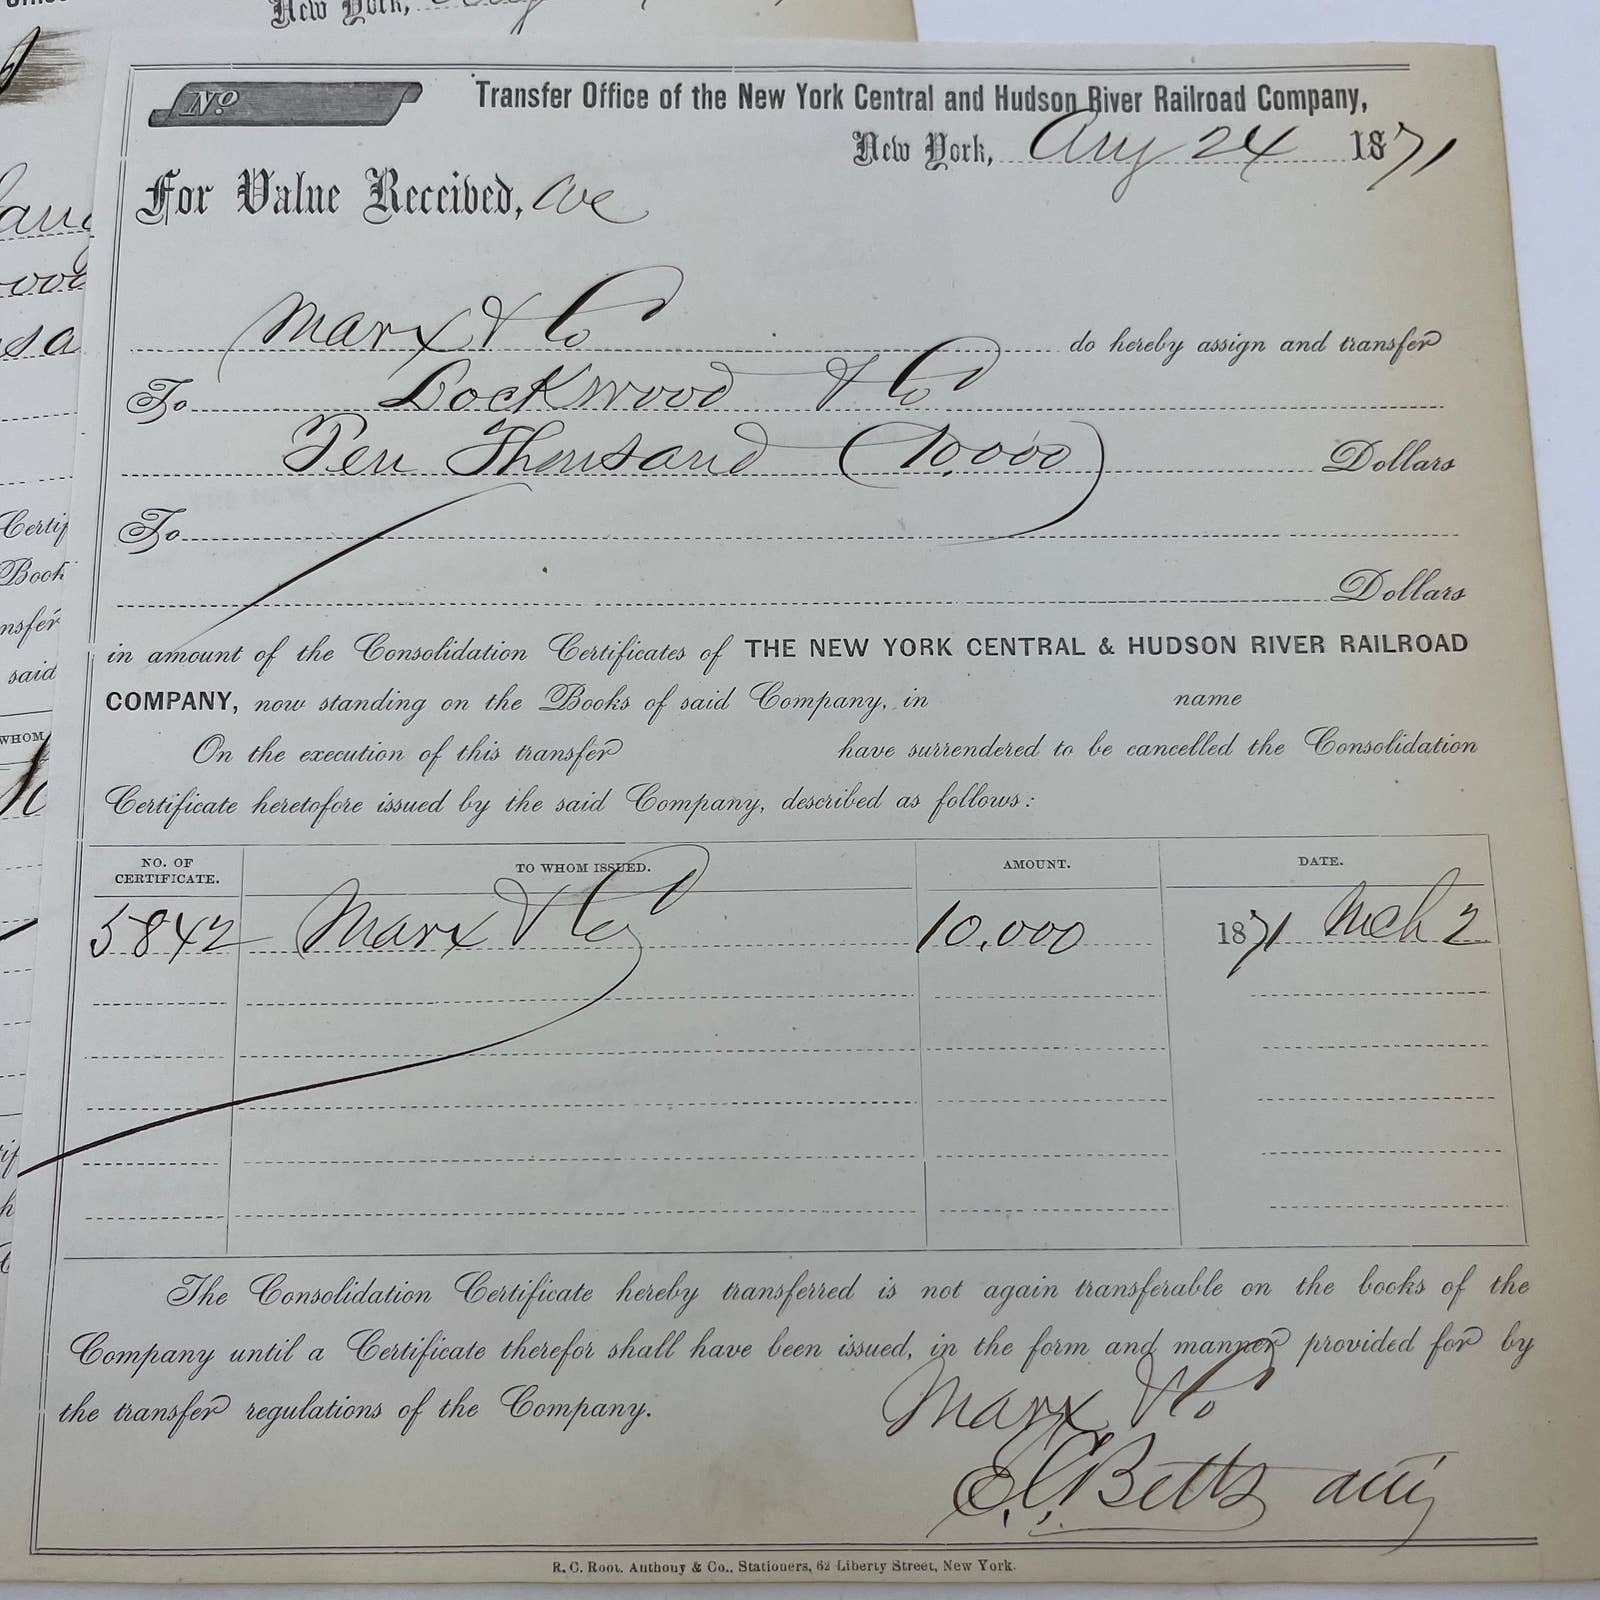 New York,
No
Transfer Office of the New York Central and Hudson River Railroad Company,
New York, Aug 24 1871
For Value Received, we
Marx & Co do hereby assign and transfer
To Lockwood & Co
Ten Thousand (10,000) Dollars
To
Dollars
in amount of the Consolidation Certificates of THE NEW YORK CENTRAL & HUDSON RIVER RAILROAD
COMPANY, now standing on the Books of said Company, in name
On the execution of this transfer have surrendered to be cancelled the Consolidation
Certificate heretofore issued by the said Company, described as follows:
NO. OF CERTIFICATE. TO WHOM ISSUED. AMOUNT. DATE.
5842 Marx & Co 10,000 1871 Mch 2
The Consolidation Certificate hereby transferred is not again transferable on the books of the
Company until a Certificate therefor shall have been issued, in the form and manner provided for by
the transfer regulations of the Company.
Marx & Co
E.C. Betts atty
R. C. Root, Anthony & Co., Stationers, 62 Liberty Street, New York.
Book
said
WHOM